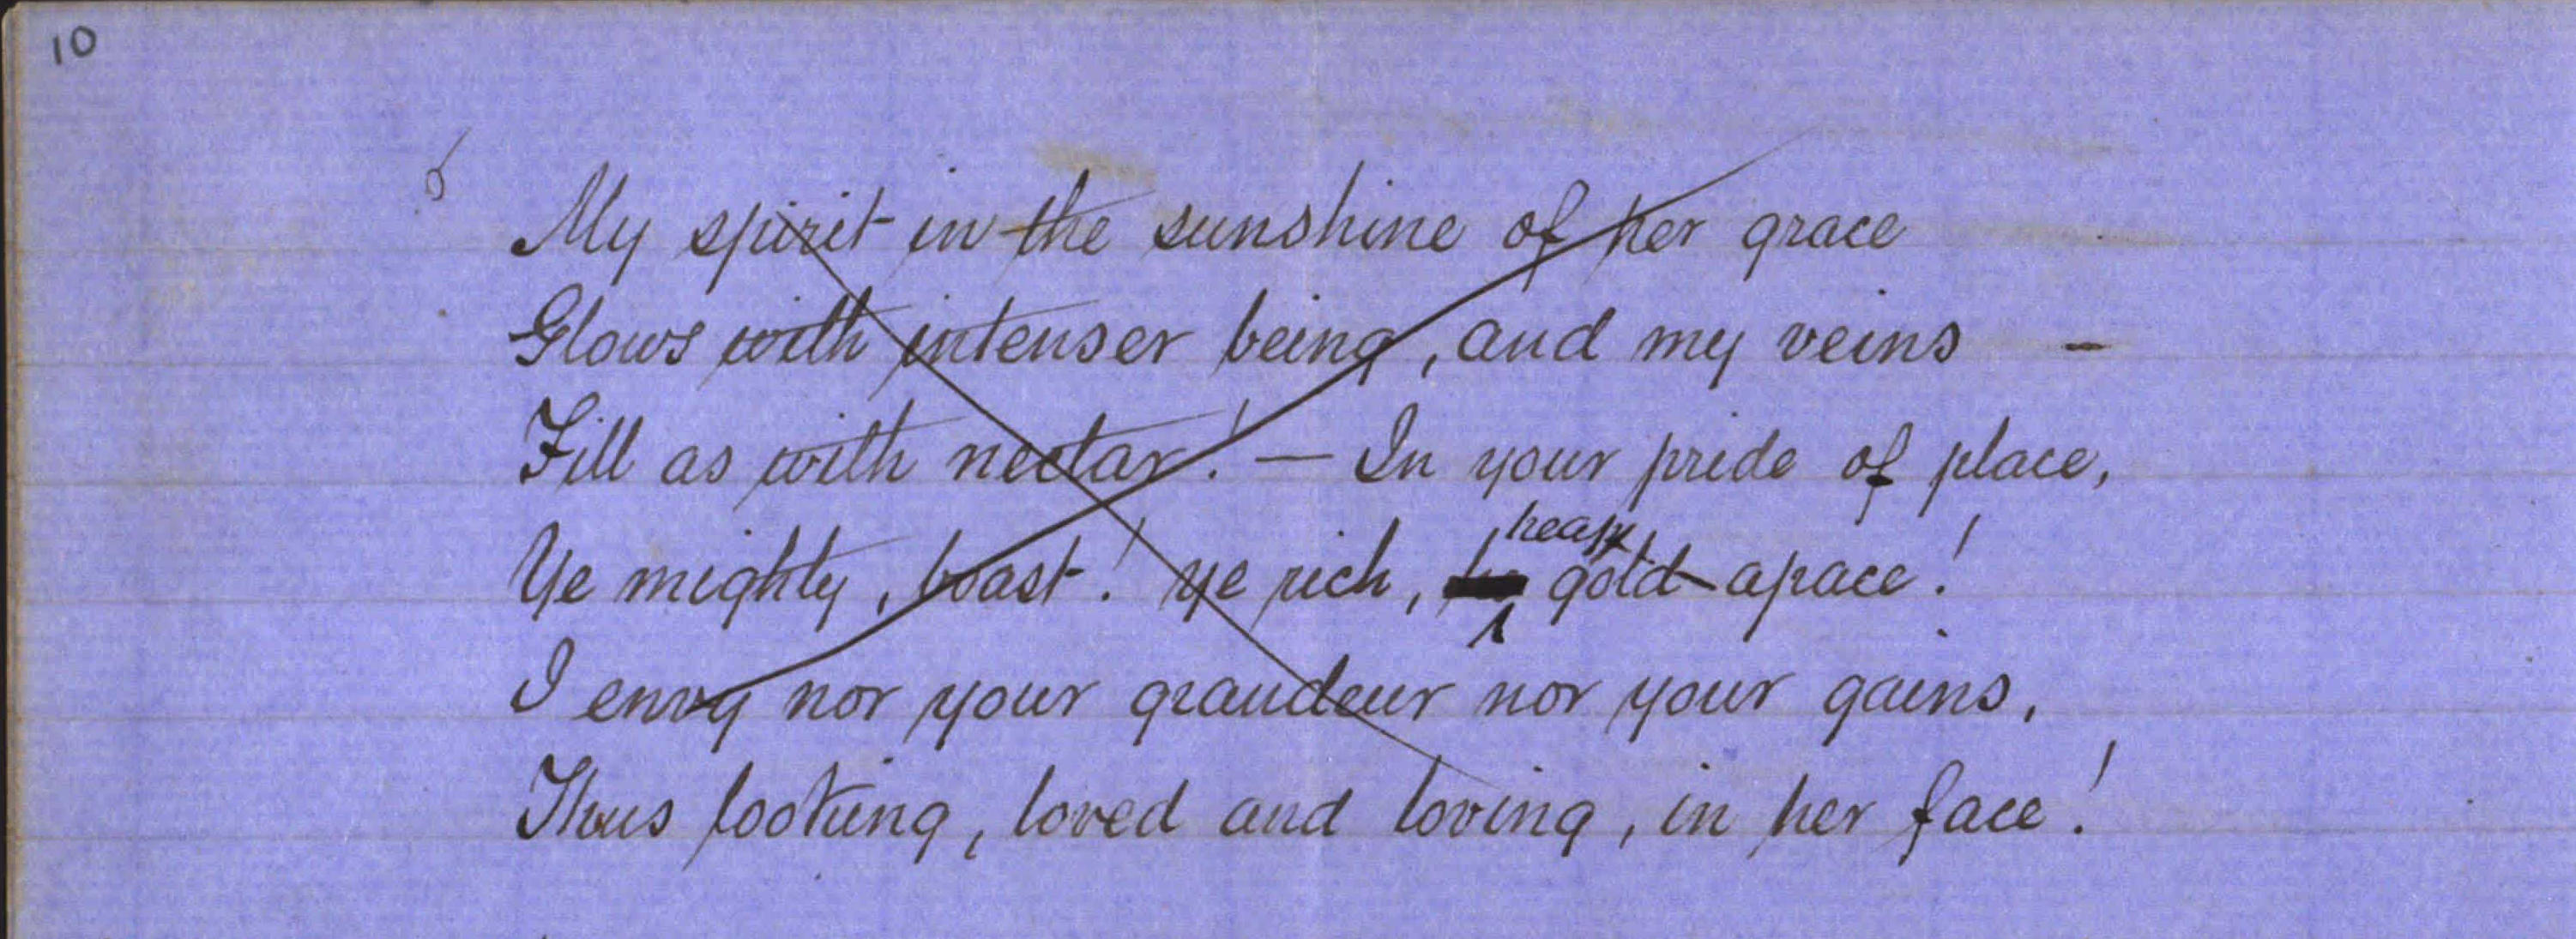 10
My spirit in the sunshine of her grace
Glows with intenser being, and my veins -
Fill as with nectar! — In your pride of place,
Ye mighty, boast! ye rich, heap gold apace!
I envy nor your grandeur nor your gains,
Thus looking, loved and loving, in her face!